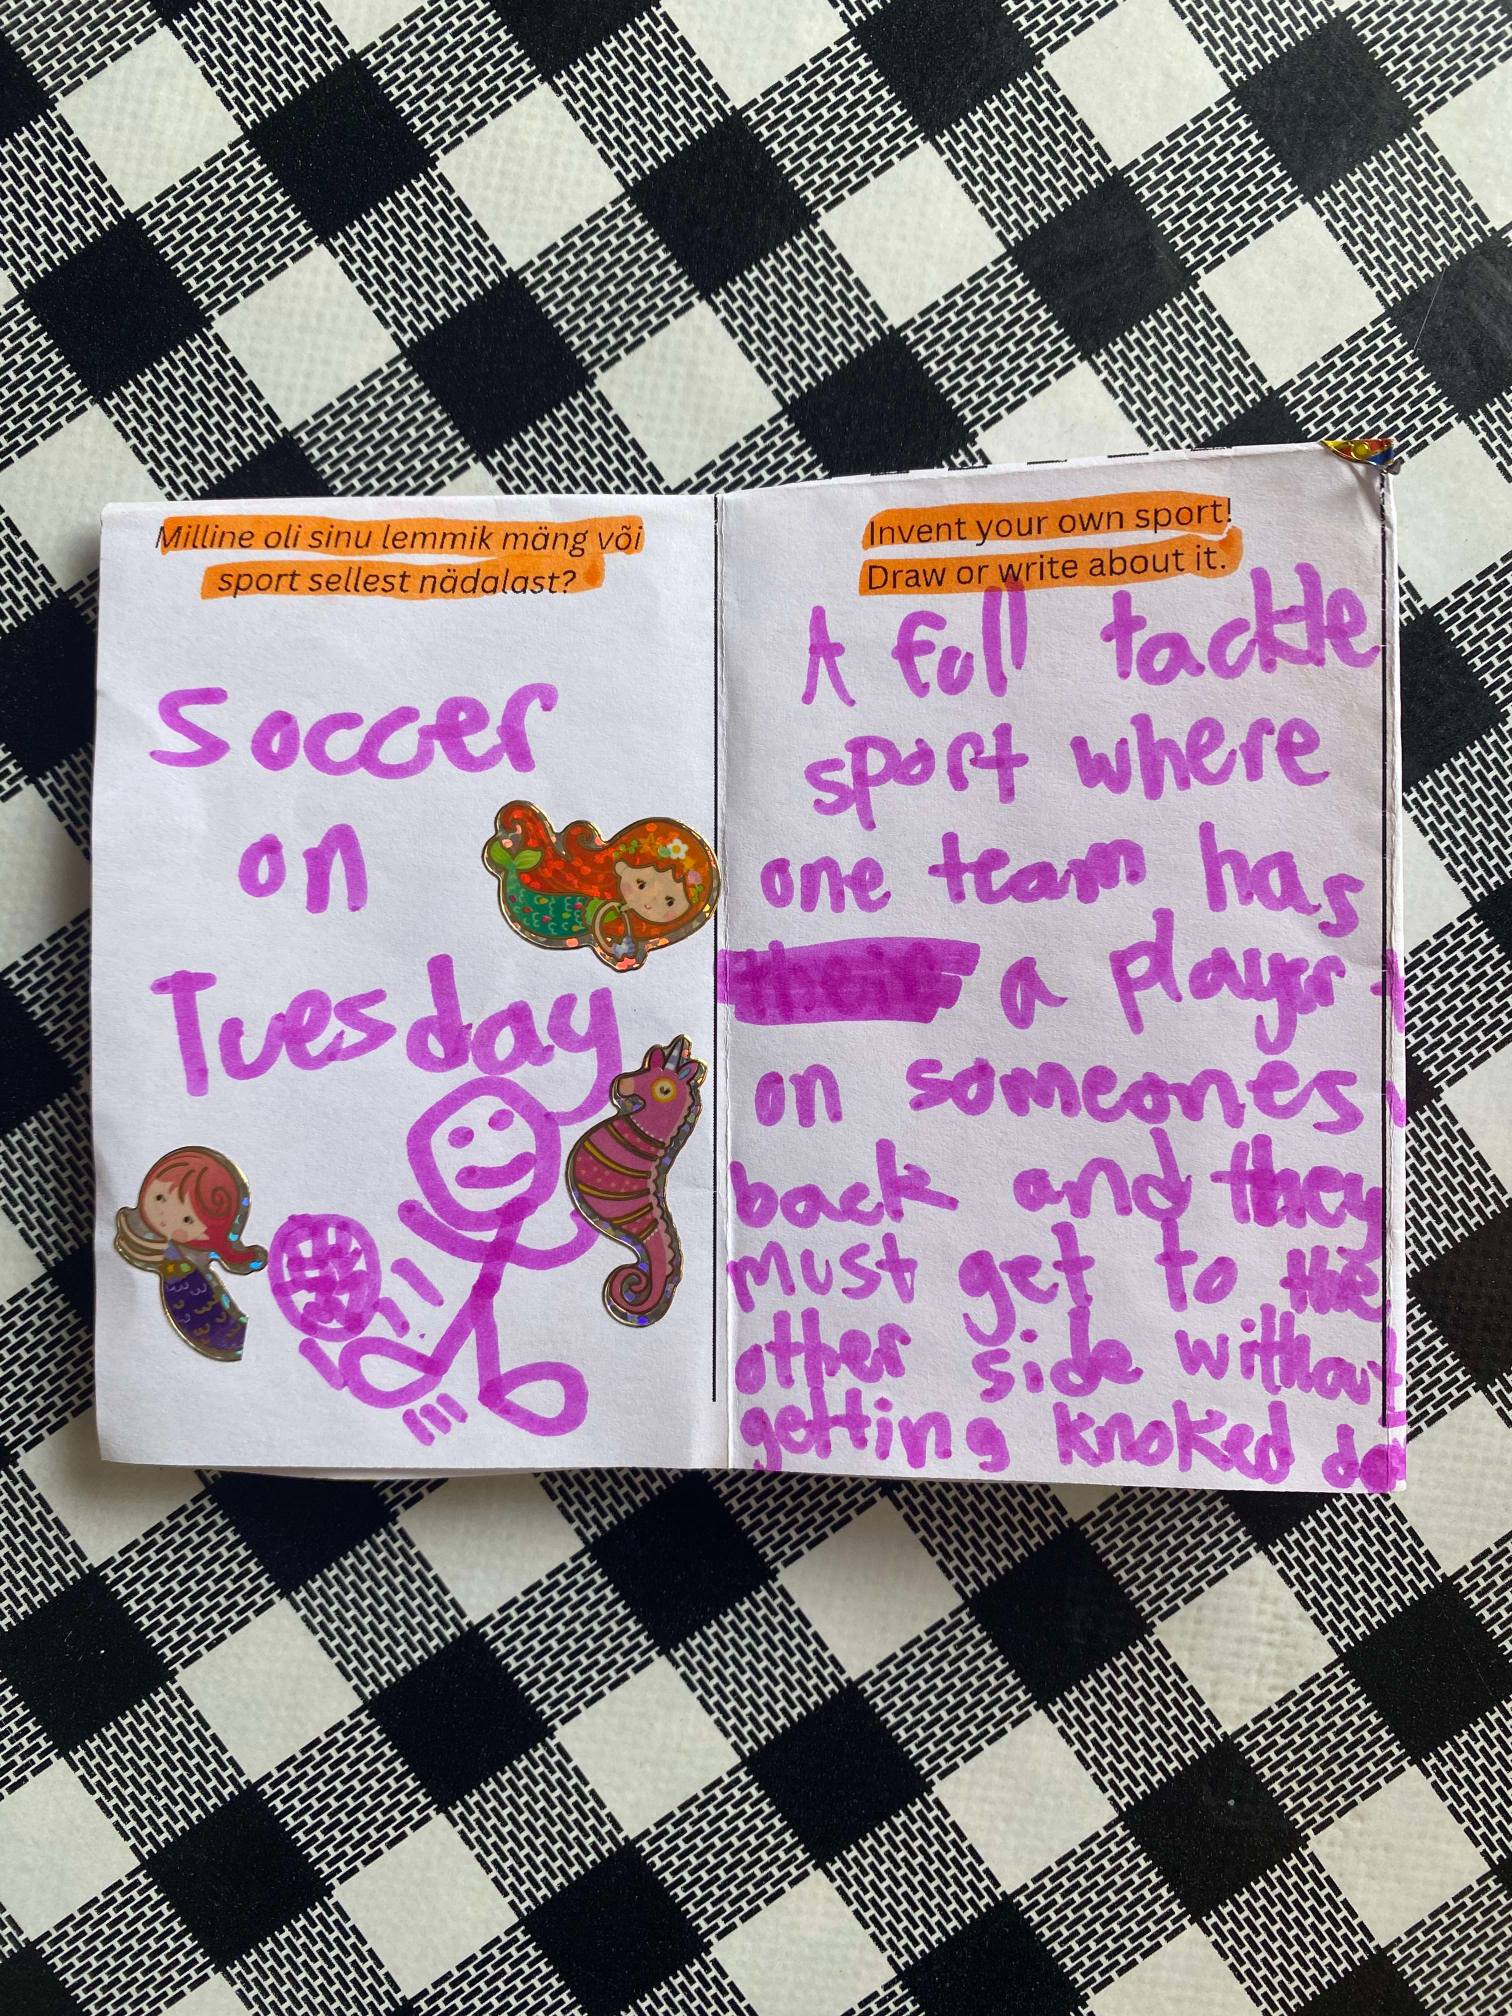 Milline oli sinu lemmik mäng või
sport sellest nädalast?
Soccer
on
Tuesday
Invent your own sport!
Draw or write about it.
A full tackle
sport where
one team has
a player
on someones
back and they
must get to the
other side without
getting knoked